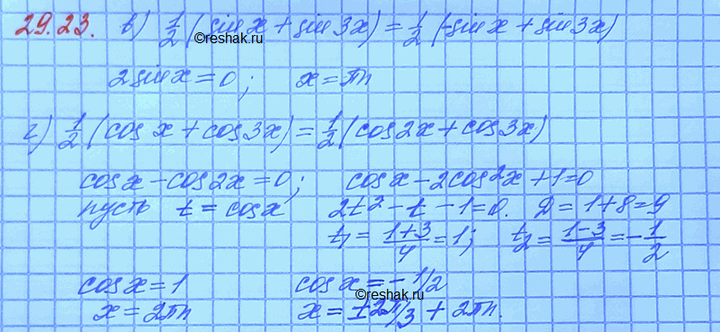 29.23. в) 1/2 (sin x + sin 3x) = 1/2 (-sin x + sin 3x)
©reshak.ru
2 sin x = 0; x = πn
г) 1/2 (cos x + cos 3x) = 1/2 (cos 2x + cos 3x)
cos x - cos 2x = 0; cos x - 2cos²x + 1 = 0
пусть t = cos x 2t² - t - 1 = 0. D = 1 + 8 = 9
t₁ = (1+3)/4 = 1; t₂ = (1-3)/4 = -1/2
cos x = 1 cos x = -1/2
©reshak.ru
x = 2πn x = ±2π/3 + 2πn